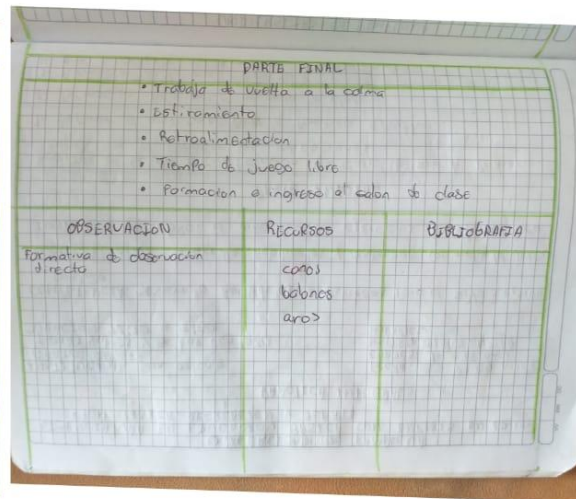 PARTE FINAL
• Trabajo de vuelta a la calma
• Estiramiento
• Retroalimentacion
• Tiempo de juego libre
• Formacion e ingreso al salon de clase
OBSERVACION RECURSOS BIBLIOGRAFIA
Formativa de observación conos
directa
balones
aros